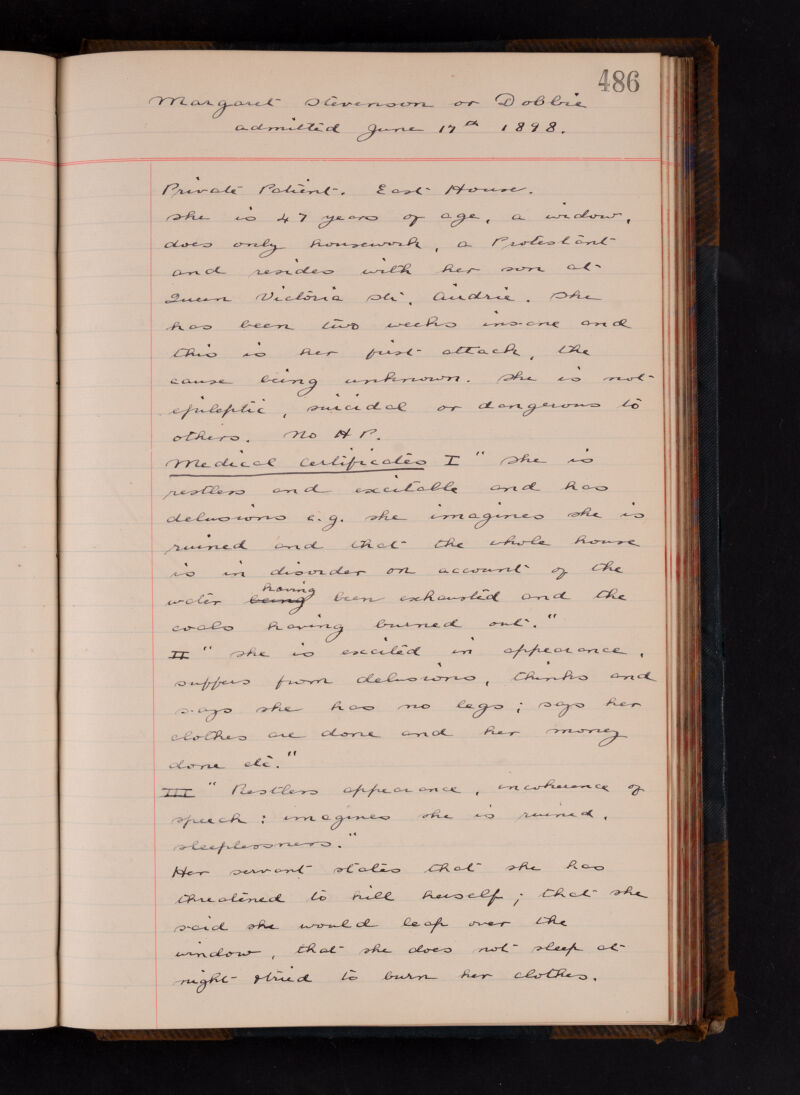 486
Margaret Stevenson or Dobbie
admitted June 17th 1898.
Private Patient. East House.
She is 47 years of age, a widow,
does only housework, a Protestant
and resides with her son at
Queen Victoria St. Airdrie. She
has been two weeks insane and
this is her first attack, the
cause being unknown. She is not
epileptic, suicidal or dangerous to
others. No H P.
Medical Certificates I "She is
restless and excitable and has
delusions e.g. she imagines she is
ruined and that the whole house
is in disorder on account of the
water being having been exhausted and the
coals having burned out."
II "She is excited in appearance,
suffers from delusions, thinks and
says she has no legs; says her
clothes are done and her money
done etc."
III "Restless appearance, incoherence of
speech: imagines she is ruined,
sleeplessness."
Her servant states that she has
threatened to kill herself; that she
said she would leap over the
window, that she does not sleep at
night & tried to burn her clothes.